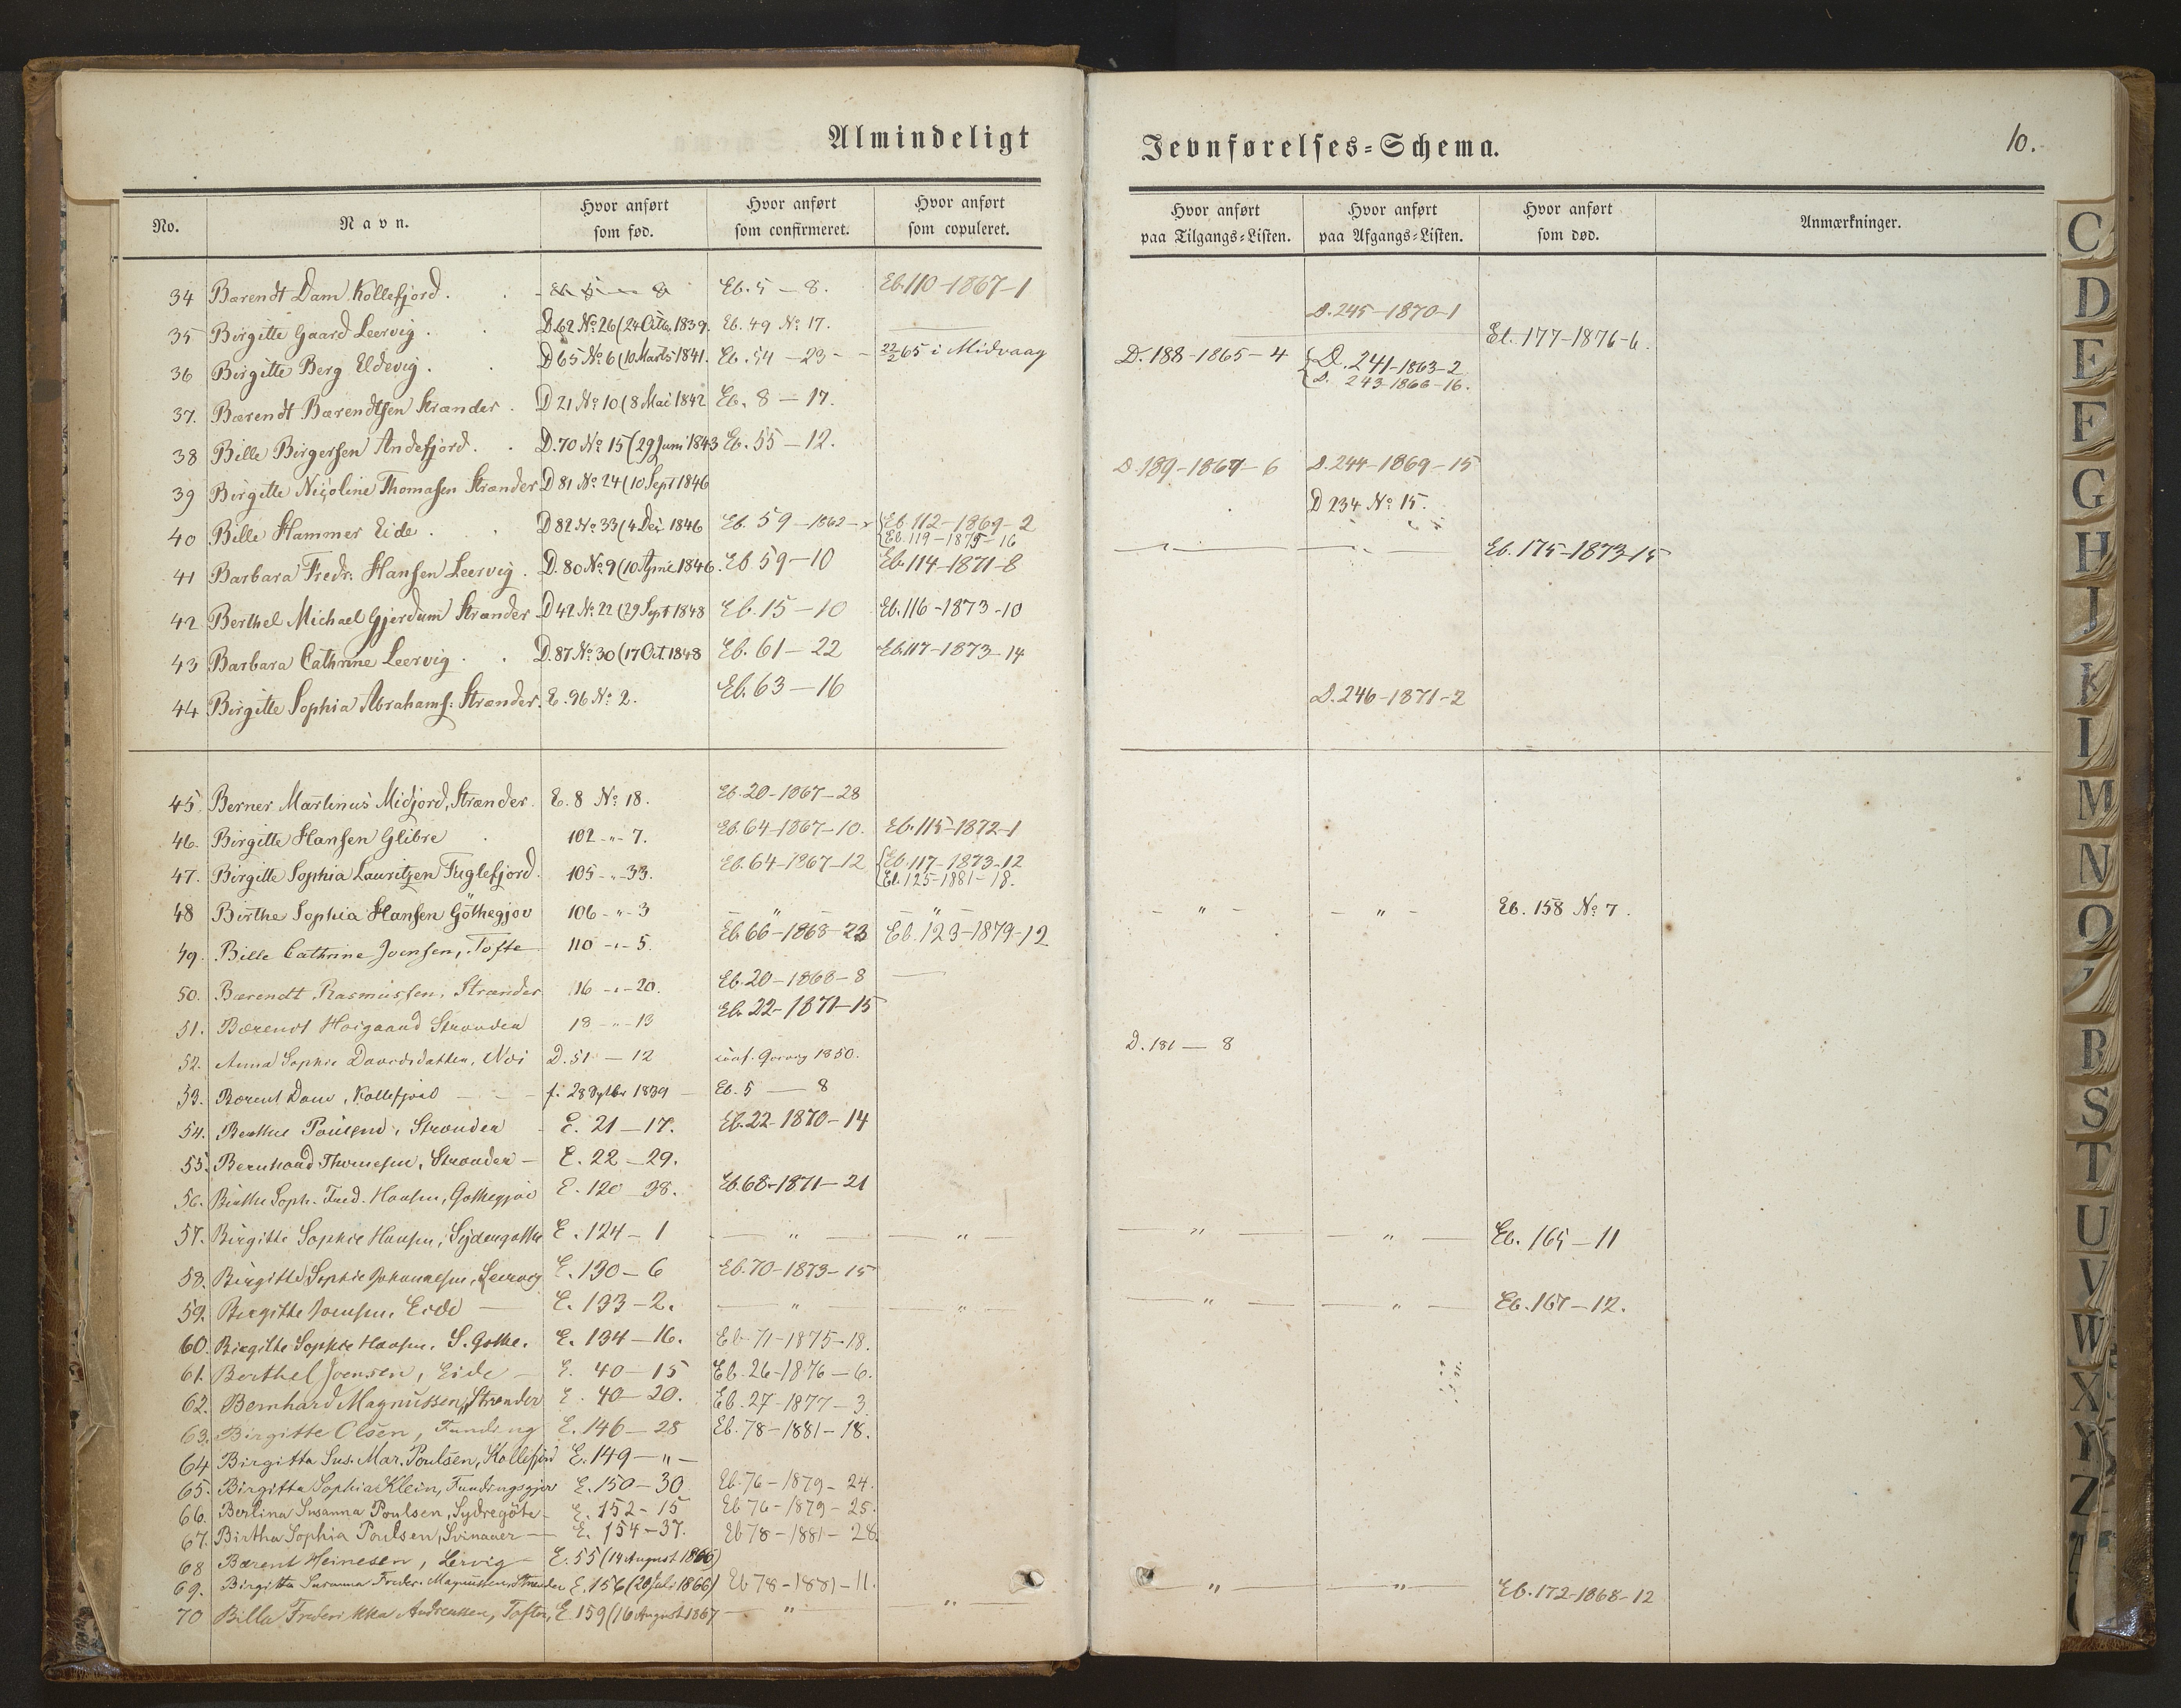 Almindeligt Jevnførelses=Schema. 10.
No. Navn. Hvor anført som fød. Hvor anført som confirmeret. Hvor anført som copuleret. Hvor anført paa Tilgangs=Listen. Hvor anført paa Afgangs=Listen. Hvor anført som død. Anmærkninger.
34 Barendt Dam Kollefjord. Eb. 5 — 8. Eb. 110-1867-1
35 Birgitte Gaard Leervig. D.62 No 26 (24 Octbr 1839. Eb. 49 No 17. D. 245-1870-1 Eb. 177-1876-6.
36 Birgitte Berg Eldevig. D 65 No 6 (10 Marts 1841. Eb. 54 — 23 - 22/2 65 i Midvaag D. 188-1865-4 D. 241-1863-2
D. 243-1866-16.
37. Barendt Barendtsen Strænder. D 21 No 10 (8 Mai 1842 Eb. 8 — 17.
38 Bille Birgersen Andefjord. D. 70 No 15 (29 Juni 1843 Eb. 55 — 12. D. 189-1867-6 D. 244-1869-15
39 Birgitte Nicoline Thomasen Strænder D 81 No 24 (10 Sept 1846 D 234 No 15.
40 Bille Hammer Eide. D 82 No 33 (4 Dec 1846 Eb. 59-1862- Eb. 112-1869-2
Eb. 119-1875-16 Eb. 175-1873-15
41 Barbara Fredr: Hansen Leervig. D. 80 No 9 (10 April 1846. Eb 59-10 Eb. 114-1871-8
42 Berthel Michael Gjerdum Strænder D 42 No 22 (29 Sept 1848 Eb. 15-10 Eb. 116-1873-10
43 Barbara Cathrine Leervig. D. 87 No 30 (17 Oct. 1848 Eb. 61-22 Eb. 117-1873-14
44 Birgitte Sophia Abrahams: Strænder. E. 96 No 2. Eb. 63-16 D. 246-1871-2
45. Berner Martinus Midjord, Strænder. E. 8 No 18. Eb. 20-1867-28
46. Birgitte Hansen Glibre 102 -"- 7. Eb. 64-1867-10. Eb. 115-1872-1
47. Birgitte Sophia Lauritzen Fuglefjord. 105 -"- 33. Eb. 64-1867-12 Eb. 117-1873-12
Eb. 125-1881-18.
48 Birthe Sophia Hansen Göthegjov 106 -"- 3 - " - - " - - " - - " - Eb. 158 No 7.
49. Bille Cathrine Joensen, Tofte 110 -"- 5. Eb 66-1868-23 Eb. 123-1879-12
50. Barendt Rasmussen, Strænder 16 -"- 20. Eb. 20-1868-8
51. Barendt Hoigaard Strænder 18 -"- 13 Eb. 22-1871-15
52. Anna Sophie Davidsdatter, Næs D. 51 — 12 conf. 1850. D. 181 — 8
53. Barent Dam, Kollefjord f. 28 Sptbr 1839 Eb. 5 — 8
54. Berthe Poulsend, Strænder E. 21 — 17. Eb. 22-1870-14
55. Bernhard Thomesen, Strænder - E. 22 - 29.
56. Birthe Soph. Fred. Hansen, Gothegjov E. 120 38. Eb. 68-1871-21
57. Birgitte Sophie Hansen, Sydengøthe E. 124 - 1 — " — — " — — " — — " — Eb. 165-11
58. Birgitte Sophie Johannesen, Leervig E. 130 - 6 Eb. 70-1873-15
59. Birgitte Joensen, Eide E. 133-2. — " — " — " — — " — Eb. 167-12.
60. Birgitte Sophie Hansen, S. Gøthe. E. 134-16. Eb-71-1875-18.
61. Berthel Joensen, Eide E. 40-15 Eb. 26-1876-6.
62. Bernhard Magnussen, Strænder E. 40-20. Eb. 27-1877-3.
63. Birgitte Olsen, Funding E. 146-28 Eb. 78-1881-18.
64 Birgitta Sus. Mar. Poulsen, Kollefjord E. 149 - " -
65. Birgitta Sophia Klein, Fundingsgjov E. 150-30 Eb. 76-1879-24.
66. Berlina Susanna Poulsen, Sydregöte E. 152-15 Eb 76-1879-25.
67. Birtha Sophia Poulsen, Svinaaer E. 154-37. Eb 78-1881-28.
68 Barent Heinesen, Lervig E. 55 (14 August 1866)
69. Birgitta Susanna Freder. Magnussen, Strænder E. 156 (20 Juli 1866) Eb 78-1881-11.
70 Billa Frederikka Andreassen, Toften, E 159 (16 August 1867 — " — " — — " — — " — Eb. 172-1868-12
C
D
E
F
G
H
J
K
L
M
N
O
R
S
T
U
V
W
X
Y
Z